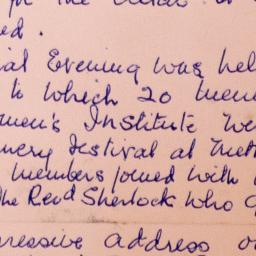 for the
ed.
ial Evening was hel
to which 20 mem
omen's Institute we
nery Festival at
members joined with
the Revd Sherlock who
pressive address o